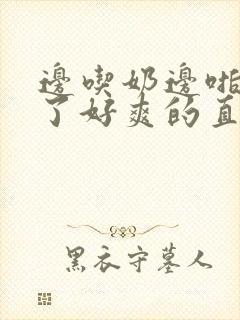 邊喫奶邊啪
了好爽的直
黑衣守墓人